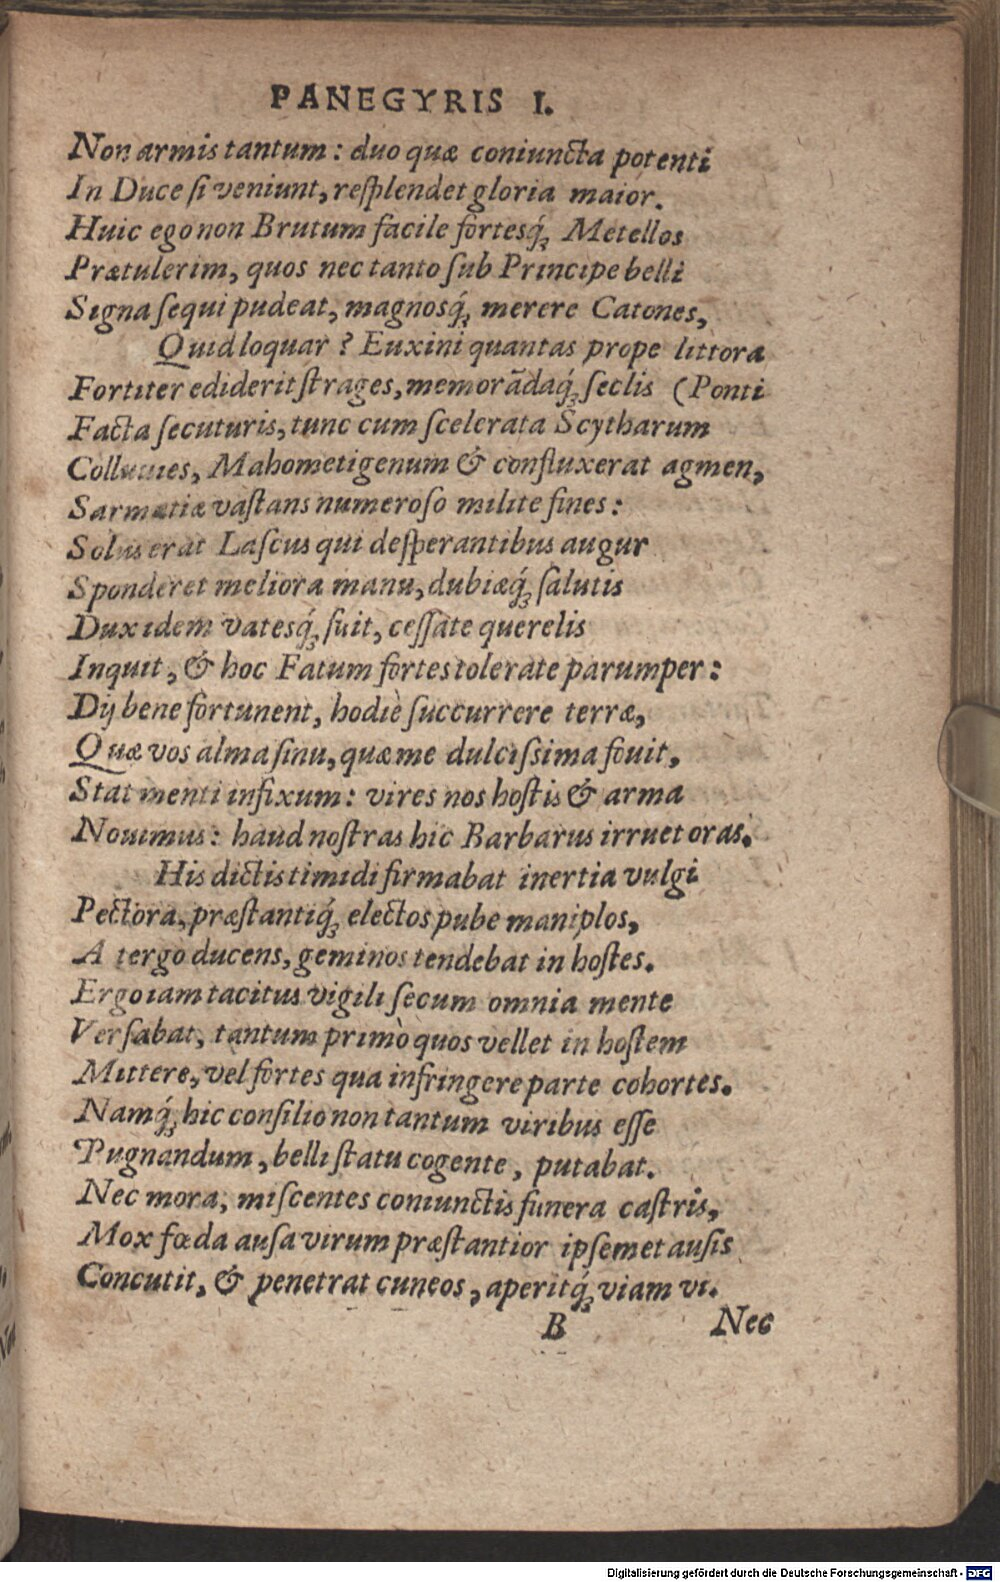 PANEGYRIS I.
Non armis tantum : duo quæ coniuncta potenti
In Duce ſi veniunt, reſplendet gloria maior.
Huic ego non Brutum facile fortesq́ꝫ Metellos
Prætulerim, quos nec tanto ſub Principe belli
Signa ſequi pudeat, magnosq́ꝫ merere Catones,
Quid loquar ? Euxini quantas prope littora
Fortiter ediderit ſtrages, memorãdaq́ꝫ ſeclis (Ponti
Facta ſecuturis, tunc cum ſcelerata Scytharum
Colluuies, Mahometigenum & confluxerat agmen,
Sarmatiæ vaſtans numeroſo milite fines :
Solus erat Laſcus qui deſperantibus augur
Sponderet meliora manu, dubiæq́ꝫ ſalutis
Dux idem vatesq́ꝫ fuit, ceſſate querelis
Inquit, & hoc Fatum fortes tolerate parumper :
Dij bene fortunent, hodiè ſuccurrere terræ,
Quæ vos alma ſinu, quæ me dulciſsima fouit,
Stat menti infixum : vires nos hoſtis & arma
Nouimus : haud noſtras hic Barbarus irruet oras.
His dictis timidi firmabat inertia vulgi
Pectora, præſtantiq́ꝫ electos pube maniplos,
A tergo ducens, geminos tendebat in hoſtes.
Ergo iam tacitus vigili ſecum omnia mente
Verſabat, tantum primò quos vellet in hoſtem
Mittere, vel fortes qua infringere parte cohortes.
Namq́ꝫ hic conſilio non tantum viribus eſſe
Pugnandum, belli ſtatu cogente, putabat.
Nec mora, miſcentes coniunctis funera caſtris,
Mox fœda auſa virum præſtantior ipſemet auſis
Concutit, & penetrat cuneos, aperitq́ꝫ viam vi.
B Nec
Digitalisierung gefördert durch die Deutsche Forschungsgemeinschaft - DFG